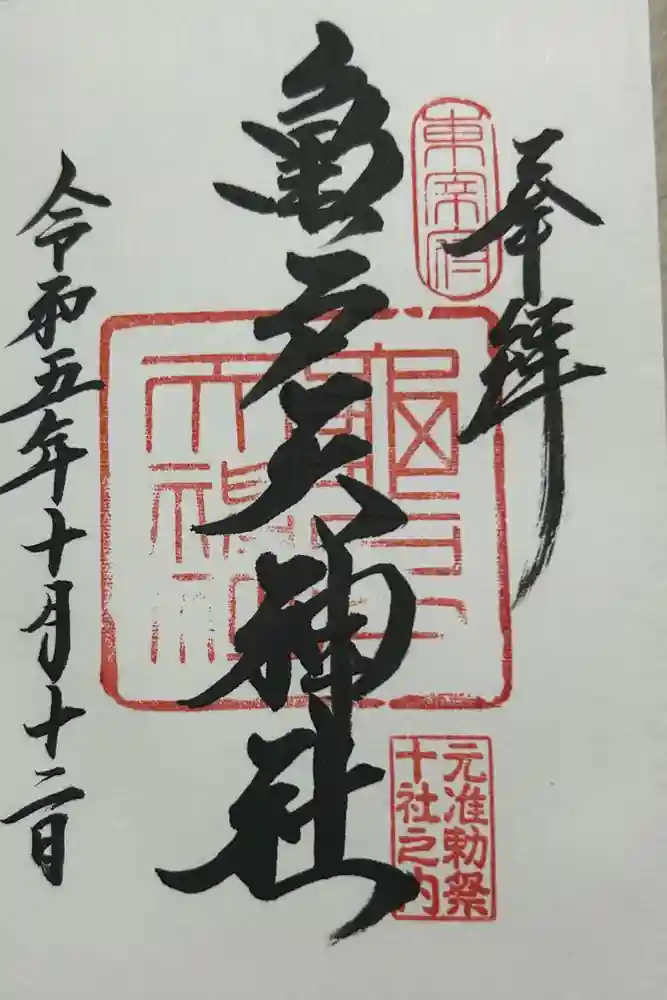 奉拝
東宰府
亀戸天神社
亀戸天神社
元准勅祭
十社之内
令和五年十月十二日